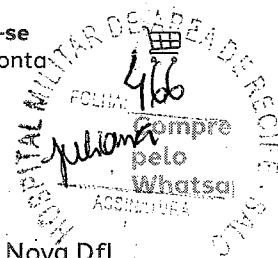 -se
onta
HOSPITAL MILITAR DE ÁREA DE RECIFE - SALC
FOLHA: 466
juliana
ASSINATURA
Compre
pelo
Whatsa
Nova Dfl